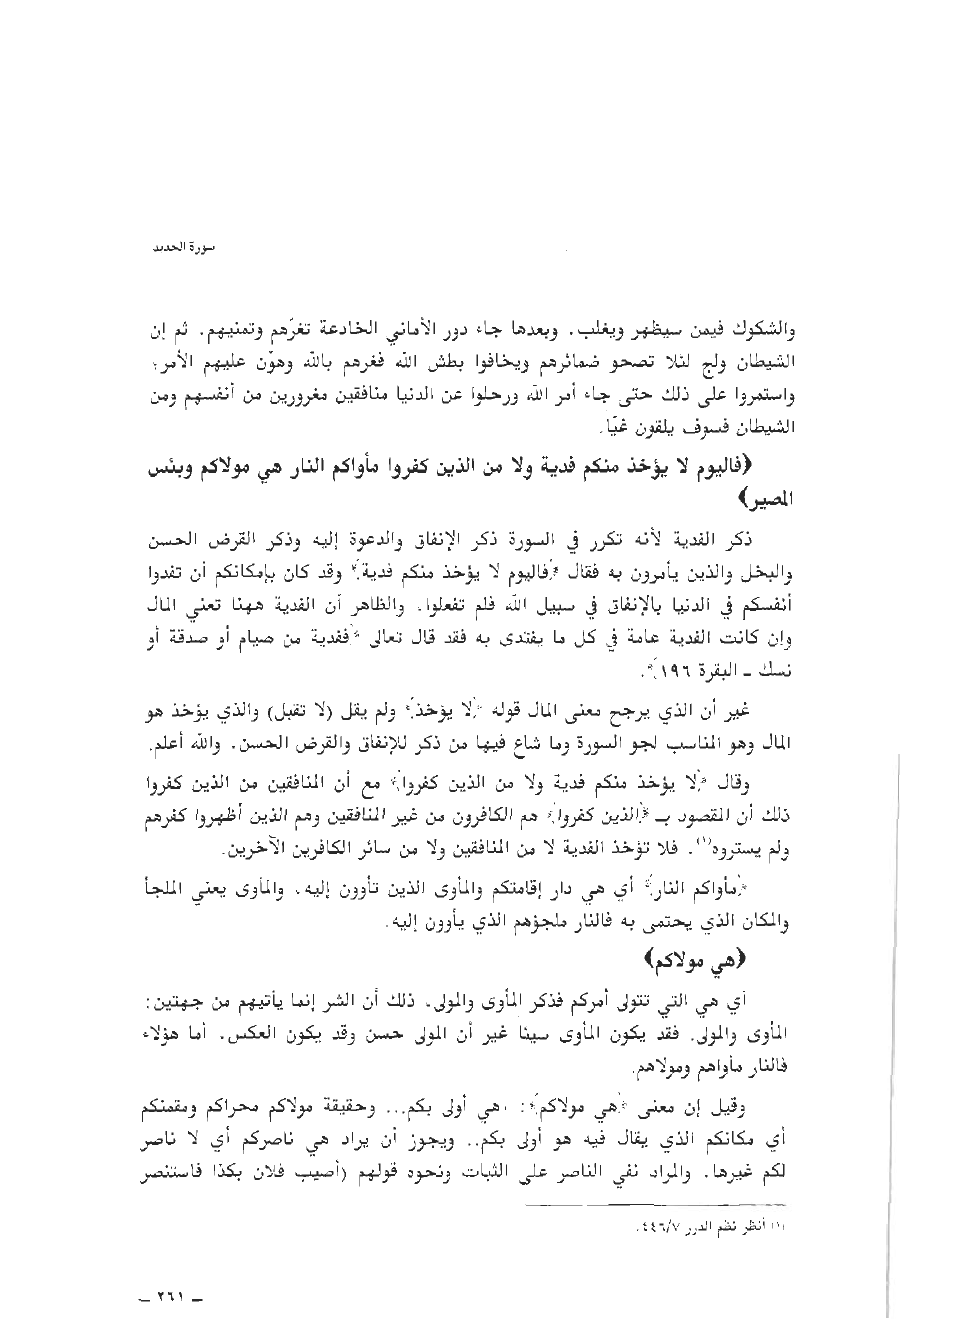 سورة الحديد
والشكوك فيمن سيظهر ويغلب. وبعدها جاء دور الأماني الخادعة تغرّهم وتمنيهم. ثم إن
الشيطان ولج لئلا تصحو ضمائرهم ويخافوا بطش الله فغرهم بالله وهوّن عليهم الأمر؛
واستمروا على ذلك حتى جاء أمر الله ورحلوا عن الدنيا منافقين مغرورين من أنفسهم ومن
الشيطان فسوف يلقون غيّا.
﴿فاليوم لا يؤخذ منكم فدية ولا من الذين كفروا مأواكم النار هي مولاكم وبئس
المصير﴾
ذكر الفدية لأنه تكرر في السورة ذكر الإنفاق والدعوة إليه وذكر القرض الحسن
والبخل والذين يأمرون به فقال ﴿فاليوم لا يؤخذ منكم فدية﴾ وقد كان بإمكانكم أن تفدوا
أنفسكم في الدنيا بالإنفاق في سبيل الله فلم تفعلوا. والظاهر أن الفدية ههنا تعني المال
وإن كانت الفدية عامة في كل ما يفتدى به فقد قال تعالى ﴿ففدية من صيام أو صدقة أو
نسك ـ البقرة ١٩٦﴾.
غير أن الذي يرجح معنى المال قوله ﴿لا يؤخذ﴾ ولم يقل (لا تقبل) والذي يؤخذ هو
المال وهو المناسب لجو السورة وما شاع فيها من ذكر للإنفاق والقرض الحسن. والله أعلم.
وقال ﴿لا يؤخذ منكم فدية ولا من الذين كفروا﴾ مع أن المنافقين من الذين كفروا
ذلك أن المقصود بـ ﴿الذين كفروا﴾ هم الكافرون من غير المنافقين وهم الذين أظهروا كفرهم
ولم يستروه(١). فلا تؤخذ الفدية لا من المنافقين ولا من سائر الكافرين الآخرين.
﴿مأواكم النار﴾ أي هي دار إقامتكم والمأوى الذين تأوون إليه. والمأوى يعني الملجأ
والمكان الذي يحتمى به فالنار ملجؤهم الذي يأوون إليه.
﴿هي مولاكم﴾
أي هي التي تتولى أمركم فذكر المأوى والمولى. ذلك أن الشر إنما يأتيهم من جهتين:
المأوى والمولى. فقد يكون المأوى سيئا غير أن المولى حسن وقد يكون العكس. أما هؤلاء
فالنار مأواهم ومولاهم.
وقيل إن معنى ﴿هي مولاكم﴾: «هي أولى بكم... وحقيقة مولاكم محراكم ومقمنكم
أي مكانكم الذي يقال فيه هو أولى بكم.. ويجوز أن يراد هي ناصركم أي لا ناصر
لكم غيرها. والمراد نفي الناصر على الثبات ونحوه قولهم (أصيب فلان بكذا فاستنصر
(١) أنظر نظم الدرر ٤٤٦/٧.
ـ ٢٦١ ـ